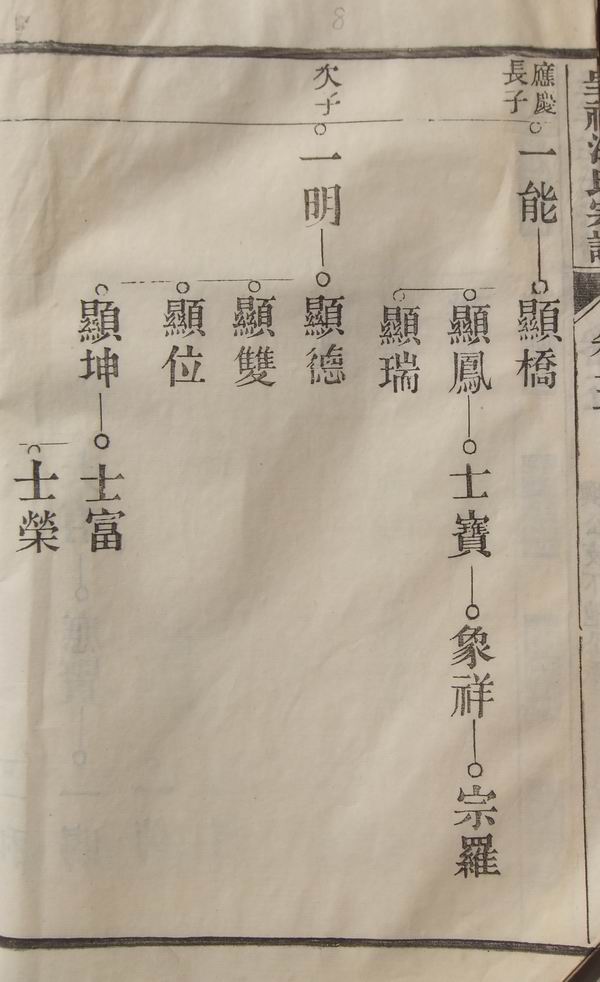 應慶
長子
一能
顯橋
顯鳳
士寶
象祥
宗羅
顯瑞
次子
一明
顯德
顯雙
顯位
顯坤
士富
士榮